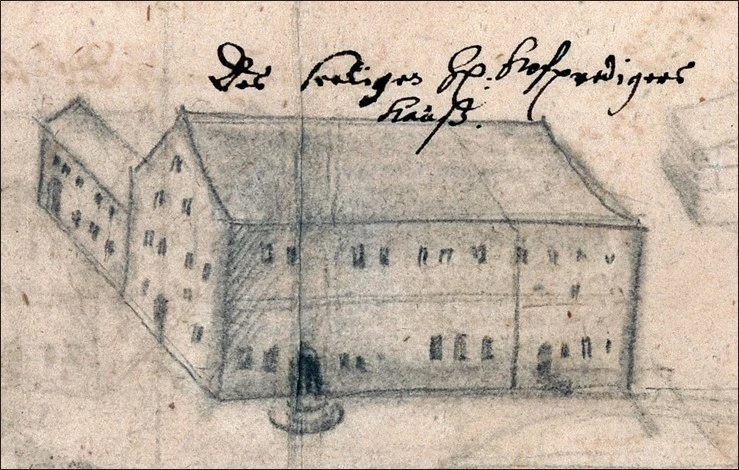 Des Seeligen H: Hofpredigers
Hauß.